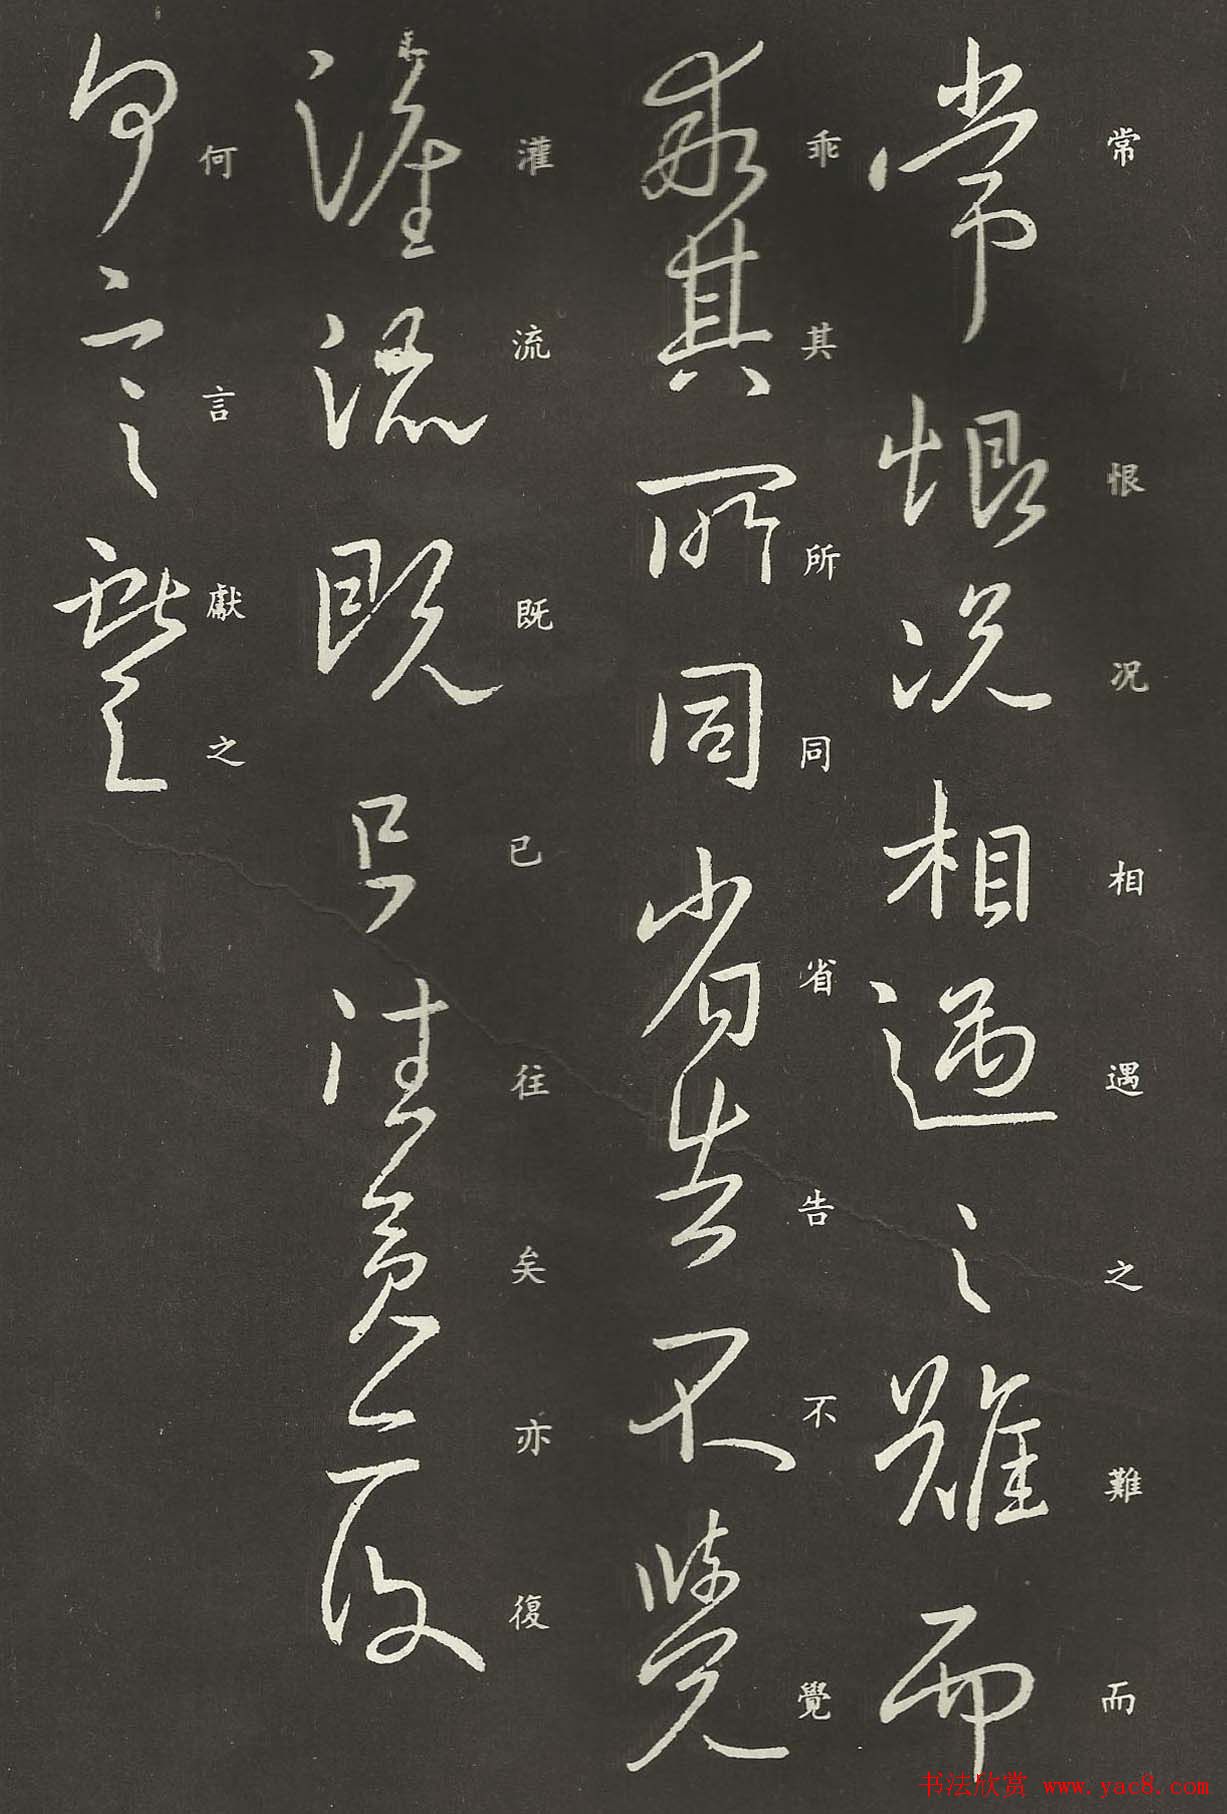 常恨况相遇之難而
乖其所同省告不覺
灌流既已往矣亦復
何言獻之
书法欣赏 www.yac8.com